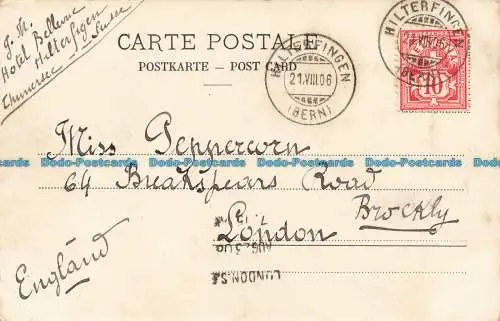 J. M.
Hotel Bellevue
Hilterfingen
Thunersee - Suisse
CARTE POSTALE
POSTKARTE - POST CARD
HILTERFINGEN
21.VIII.06
(BERN)
HILTERFINGEN
VIII.06
(BERN)
10
Miss Peppercorn
64 Breakspears Road
Brockly
London
England
LONDON S.E
AUG 23 06
Dodo-Postcards Dodo-Postcards Dodo-Postcards Dodo-Postcards Dodo-Postcards Dodo-Postcards